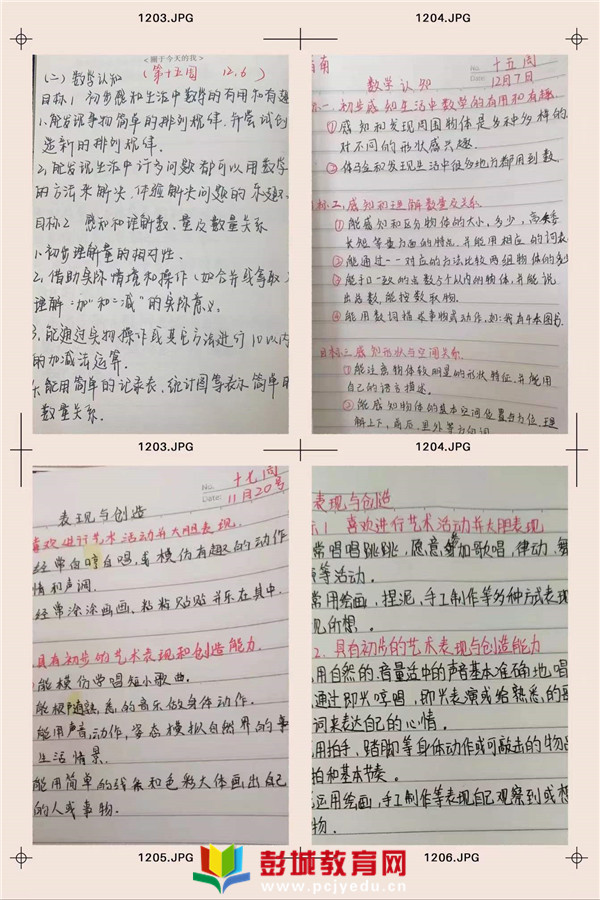 1203.JPG
1204.JPG
<圈于今天的我>
(二)数学认知
(第十五周 12.6)
目标1 初步感知生活中数学的有用和有趣
1.能发现事物简单的排列规律,并尝试创
造新的排列规律.
2,能发现生活中许多问题都可以用数学
的方法来解决,体验解决问题的乐趣.
目标2 感知和理解数、量及数量关系
1.初步理解量的相对性.
2,借助实际情境和操作(如合并或拿取)
理解"加"和"减"的实际意义.
3,能通过实物操作或其它方法进行10以内
的加减法运算.
能用简单的记录表、统计图等表示简单的
数量关系.
指南
No. 十五周
Date. 12月7日
数学认知
标一、初步感知生活中数学的有用和有趣
①感知和发现周围物体是多种多样的
对不同的形状感兴趣.
②体会和发现生活中很多地方都用到数.
目标二、感知和理解数量及关系
①能感知和区分物体的大小,多少,高矮
长短等量方面的特点,并能用相应的词表
②能通过一一对应的方法比较两组物体的多少
③能手口一致的点数5个以内的物体,并能说
出总数,能按数取物.
④能用数词描述事物或动作,如:我有4本图书.
目标三.感知形状与空间关系.
①能注意物体较明显的形状特征,并能用
自己的语言描述.
②能感知物体的基本空间位置与方位,理
解上下,前后,里外等方位词
1203.JPG
1204.JPG
No. 十九周
Date. 11月20号
表现与创造
喜欢进行艺术活动并大胆表现.
经常自哼自唱,或模仿有趣的动作
情和声调.
经常涂涂画画、粘粘贴贴并乐在其中.
具有初步的艺术表现和创造能力.
能模仿学唱短小歌曲.
能跟随熟悉的音乐做身体动作.
能用声音,动作,姿态模拟自然界的事
生活情景.
能用简单的线条和色彩大体画出自己
的人或事物.
表现与创造
标1 喜欢进行艺术活动并大胆表现
常唱唱跳跳,愿意参加歌唱,律动,舞
等活动.
常用绘画,捏泥,手工制作等多种方式表现
见所想。
2、具有初步的艺术表现与创造能力
用自然的、音量适中的声音基本准确地唱
通过即兴哼唱,即兴表演或给熟悉的歌
词来表达自己的心情。
用拍手、踏脚等身体动作或可敲击的物品
拍和基本节奏。
运用绘画,手工制作等表现自己观察到或想
物.
1205.JPG
1206.JPG
彭城教育网
www.pcjyedu.cn